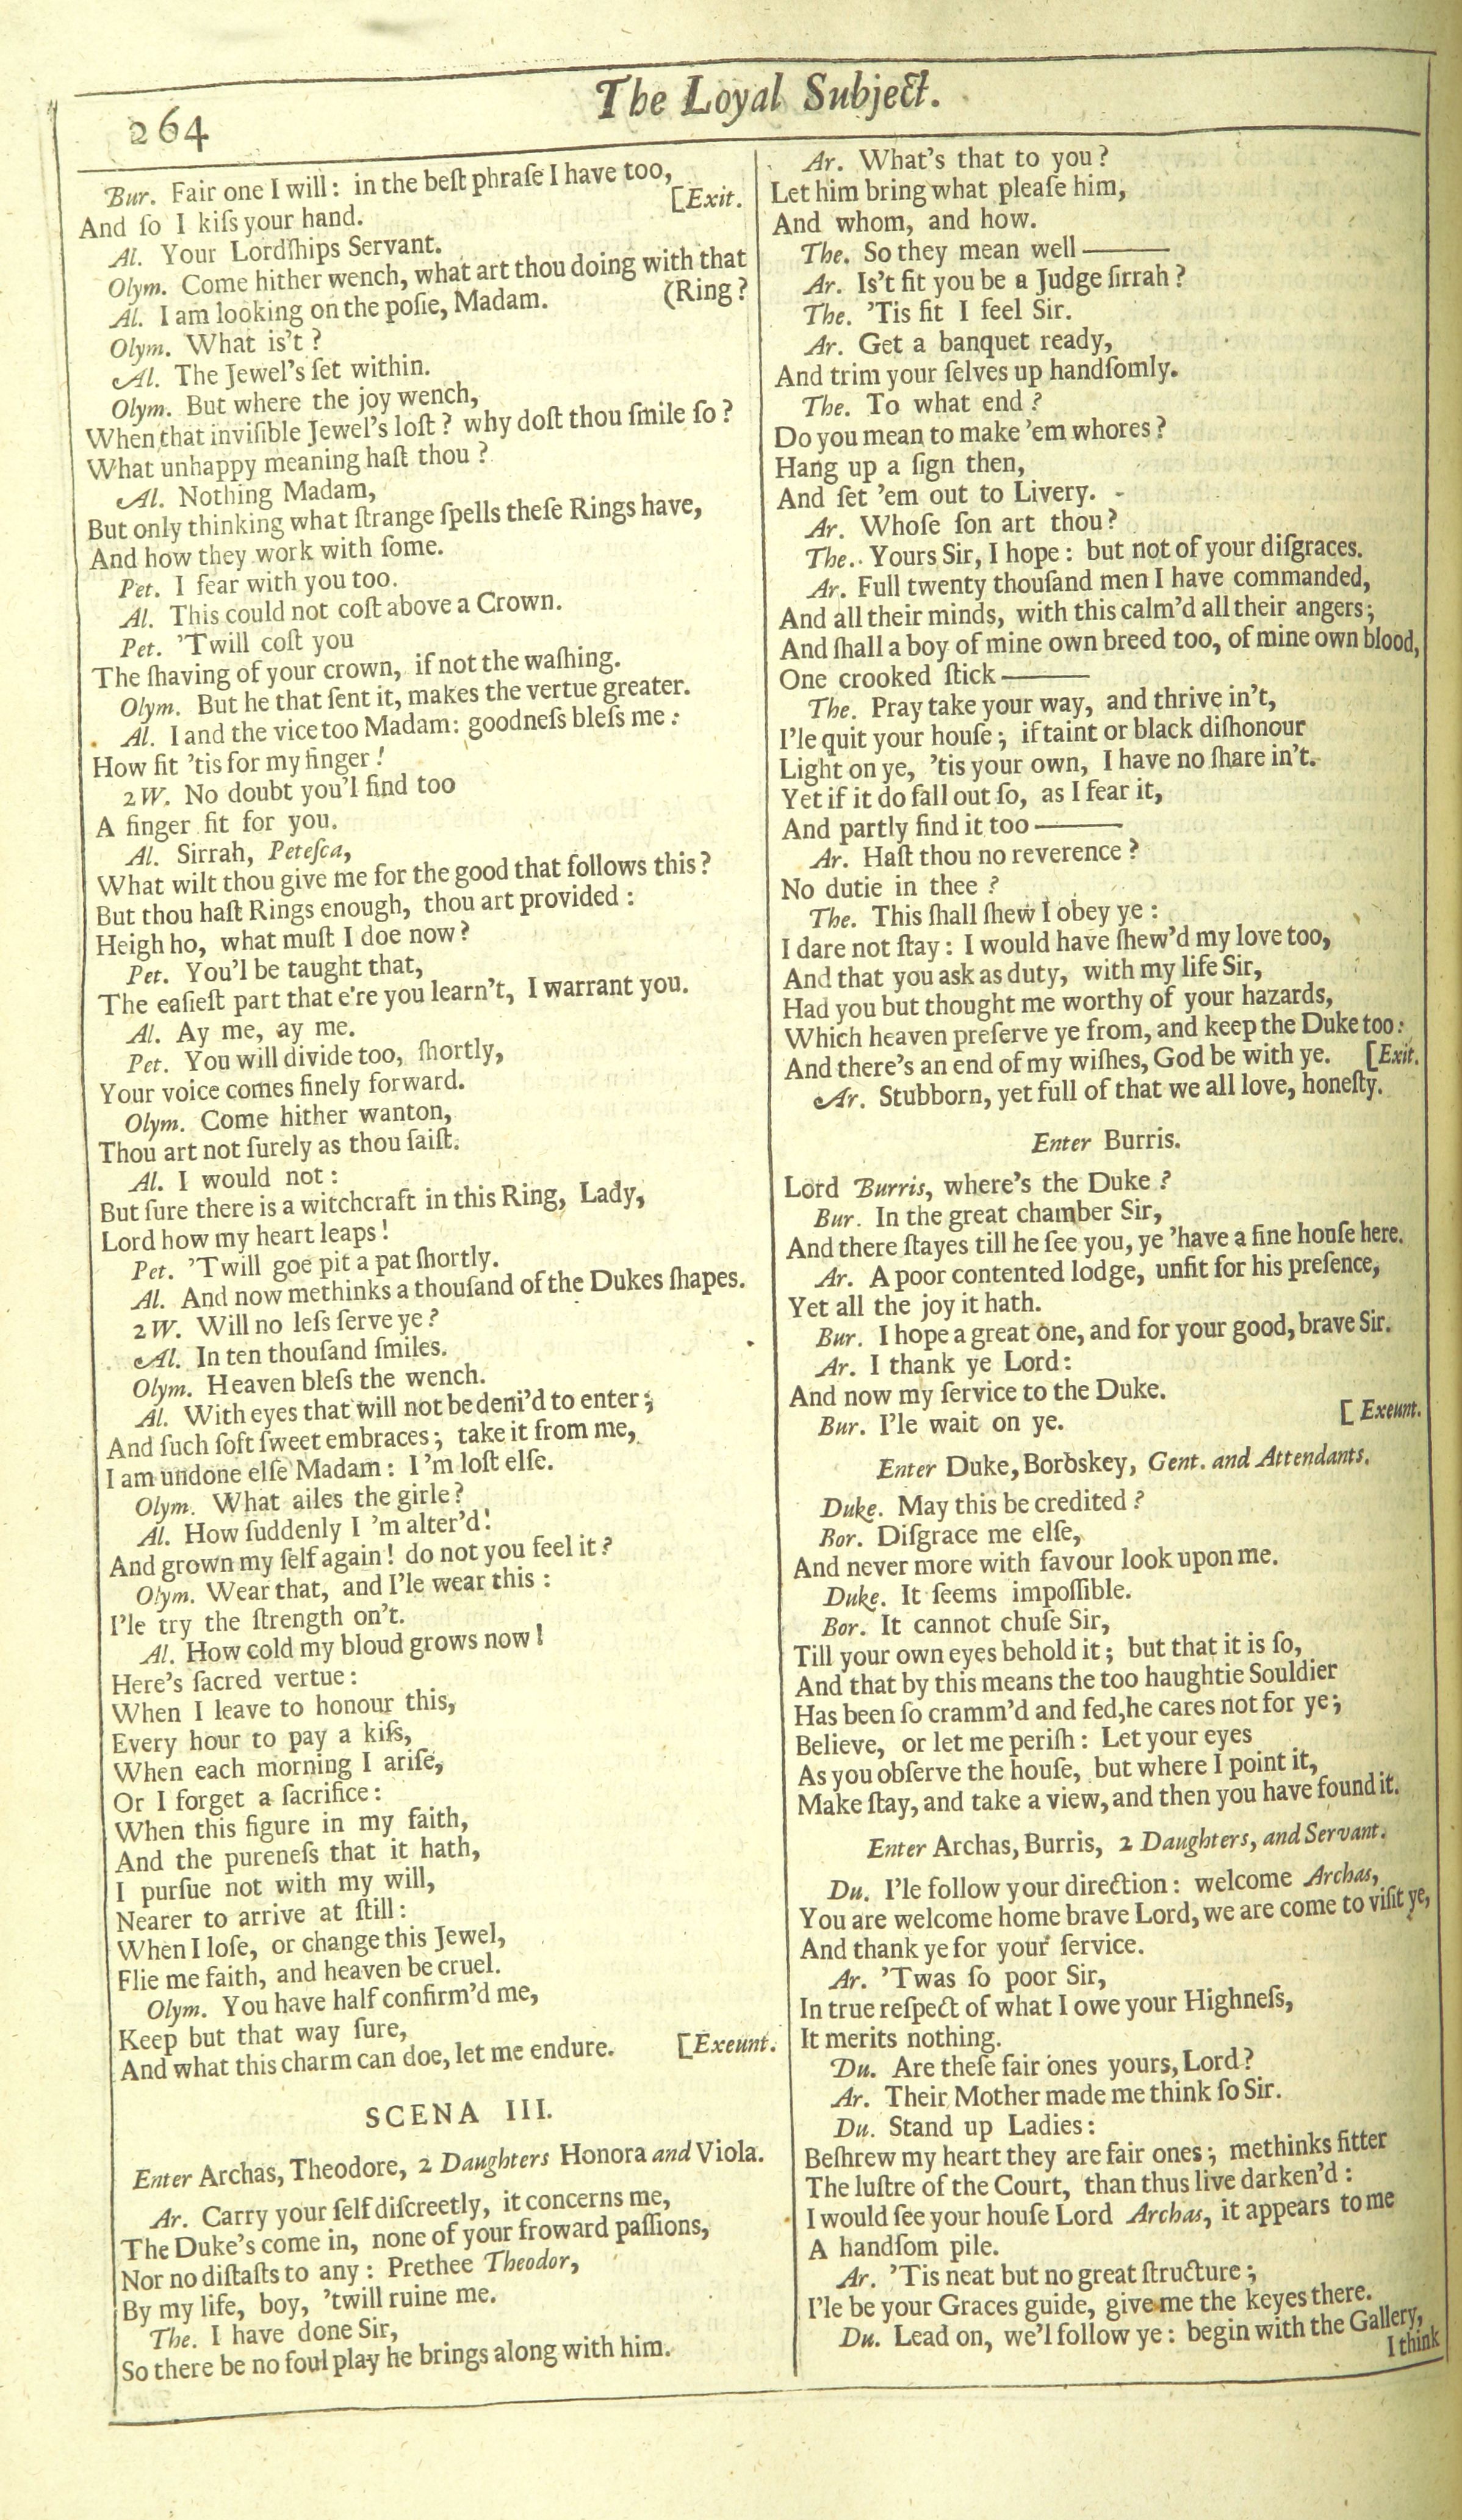 264
The Loyal Subject.
Bur. Fair one I will: in the beſt phraſe I have too,
And ſo I kiſs your hand. [Exit.
Al. Your Lordſhips Servant.
Olym. Come hither wench, what art thou doing with that
Al. I am looking on the poſie, Madam. (Ring?
Olym. What is't?
Al. The Jewel's ſet within.
Olym. But where the joy wench,
When that inviſible Jewel's loſt? why doſt thou ſmile ſo?
What unhappy meaning haſt thou?
Al. Nothing Madam,
But only thinking what ſtrange ſpells theſe Rings have,
And how they work with ſome.
Pet. I fear with you too.
Al. This could not coſt above a Crown.
Pet. 'Twill coſt you
The ſhaving of your crown, if not the waſhing.
Olym. But he that ſent it, makes the vertue greater.
Al. I and the vice too Madam: goodneſs bleſs me:
How fit 'tis for my finger!
2 W. No doubt you'l find too
A finger fit for you.
Al. Sirrah, Peteſca,
What wilt thou give me for the good that follows this?
But thou haſt Rings enough, thou art provided:
Heigh ho, what muſt I doe now?
Pet. You'l be taught that,
The eaſieſt part that e're you learn't, I warrant you.
Al. Ay me, ay me.
Pet. You will divide too, ſhortly,
Your voice comes finely forward.
Olym. Come hither wanton,
Thou art not ſurely as thou ſaiſt.
Al. I would not:
But ſure there is a witchcraft in this Ring, Lady,
Lord how my heart leaps!
Pet. 'Twill goe pit a pat ſhortly.
Al. And now methinks a thouſand of the Dukes ſhapes.
2 W. Will no leſs ſerve ye?
Al. In ten thouſand ſmiles.
Olym. Heaven bleſs the wench.
Al. With eyes that will not be deni'd to enter;
And ſuch ſoft ſweet embraces; take it from me,
I am undone elſe Madam: I'm loſt elſe.
Olym. What ailes the girle?
Al. How ſuddenly I'm alter'd!
And grown my ſelf again! do not you feel it?
Olym. Wear that, and I'le wear this:
I'le try the ſtrength on't.
Al. How cold my bloud grows now!
Here's ſacred vertue:
When I leave to honour this,
Every hour to pay a kiſs,
When each morning I ariſe,
Or I forget a ſacrifice:
When this figure in my faith,
And the pureneſs that it hath,
I purſue not with my will,
Nearer to arrive at ſtill:
When I loſe, or change this Jewel,
Flie me faith, and heaven be cruel.
Olym. You have half confirm'd me,
Keep but that way ſure,
And what this charm can doe, let me endure. [Exeunt.
SCENA III.
Enter Archas, Theodore, 2 Daughters Honora and Viola.
Ar. Carry your ſelf diſcreetly, it concerns me,
The Duke's come in, none of your froward paſſions,
Nor no diſtaſts to any: Prethee Theodor,
By my life, boy, 'twill ruine me.
The. I have done Sir,
So there be no foul play he brings along with him.
Ar. What's that to you?
Let him bring what pleaſe him,
And whom, and how.
The. So they mean well———
Ar. Is't fit you be a Judge ſirrah?
The. 'Tis fit I feel Sir.
Ar. Get a banquet ready,
And trim your ſelves up handſomly.
The. To what end?
Do you mean to make 'em whores?
Hang up a ſign then,
And ſet 'em out to Livery.
Ar. Whoſe ſon art thou?
The. Yours Sir, I hope: but not of your diſgraces.
Ar. Full twenty thouſand men I have commanded,
And all their minds, with this calm'd all their angers;
And ſhall a boy of mine own breed too, of mine own blood,
One crooked ſtick———
The. Pray take your way, and thrive in't,
I'le quit your houſe; if taint or black diſhonour
Light on ye, 'tis your own, I have no ſhare in't.
Yet if it do fall out ſo, as I fear it,
And partly find it too———
Ar. Haſt thou no reverence?
No dutie in thee?
The. This ſhall ſhew I obey ye:
I dare not ſtay: I would have ſhew'd my love too,
And that you ask as duty, with my life Sir,
Had you but thought me worthy of your hazards,
Which heaven preſerve ye from, and keep the Duke too:
And there's an end of my wiſhes, God be with ye. [Exit.
Ar. Stubborn, yet full of that we all love, honeſty.
Enter Burris.
Lord Burris, where's the Duke?
Bur. In the great chamber Sir,
And there ſtayes till he ſee you, ye 'have a fine houſe here.
Ar. A poor contented lodge, unfit for his preſence,
Yet all the joy it hath.
Bur. I hope a great one, and for your good, brave Sir.
Ar. I thank ye Lord:
And now my ſervice to the Duke.
Bur. I'le wait on ye. [Exeunt.
Enter Duke, Boroskey, Gent. and Attendants.
Duke. May this be credited?
Bor. Diſgrace me elſe,
And never more with favour look upon me.
Duke. It ſeems impoſſible.
Bor. It cannot chuſe Sir,
Till your own eyes behold it; but that it is ſo,
And that by this means the too haughtie Souldier
Has been ſo cramm'd and fed, he cares not for ye;
Believe, or let me periſh: Let your eyes
As you obſerve the houſe, but where I point it,
Make ſtay, and take a view, and then you have found it.
Enter Archas, Burris, 2 Daughters, and Servant.
Du. I'le follow your direction: welcome Archas,
You are welcome home brave Lord, we are come to viſit ye,
And thank ye for your ſervice.
Ar. 'Twas ſo poor Sir,
In true reſpect of what I owe your Highneſs,
It merits nothing.
Du. Are theſe fair ones yours, Lord?
Ar. Their Mother made me think ſo Sir.
Du. Stand up Ladies:
Beſhrew my heart they are fair ones; methinks fitter
The luſtre of the Court, than thus live darken'd:
I would ſee your houſe Lord Archas, it appears to me
A handſom pile.
Ar. 'Tis neat but no great ſtructure;
I'le be your Graces guide, give me the keyes there.
Du. Lead on, we'l follow ye: begin with the Gallery,
I think